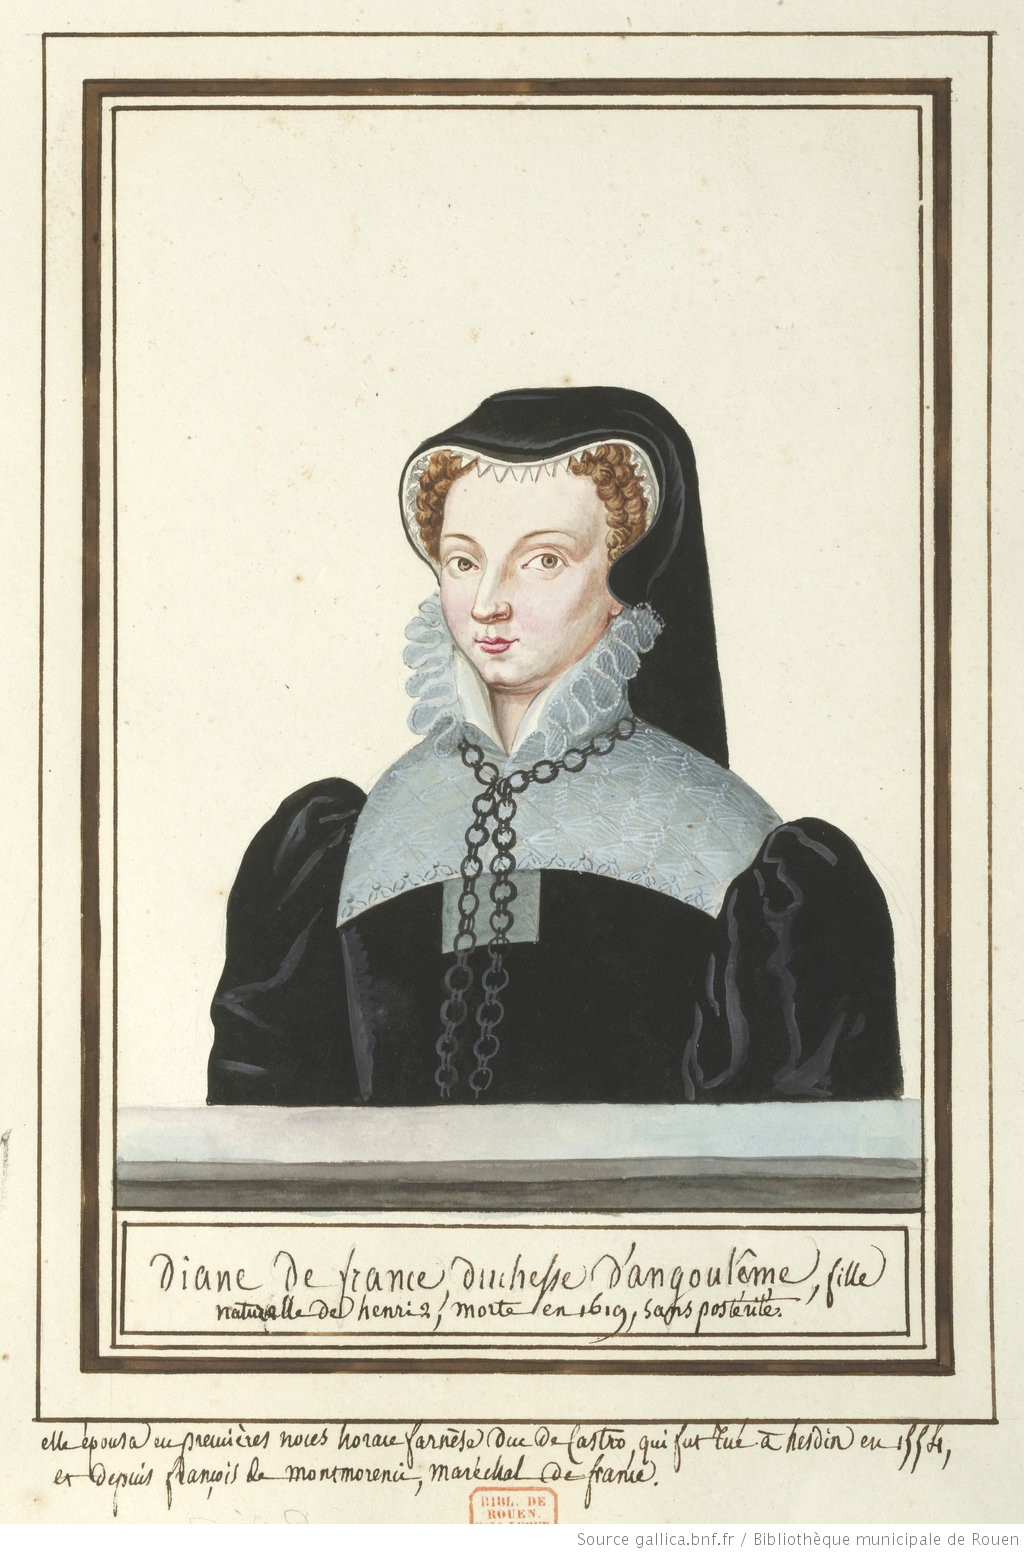 Diane de france, duchesse d'angoulême, fille
naturelle de henri 2, morte en 1619, sans postérité.
elle épousa en premières noces horace farnèse duc de Castro, qui fut tué à hesdin en 1554,
et depuis françois de montmorenci, maréchal de france.
BIBL. DE
ROUEN.
Source gallica.bnf.fr / Bibliothèque municipale de Rouen